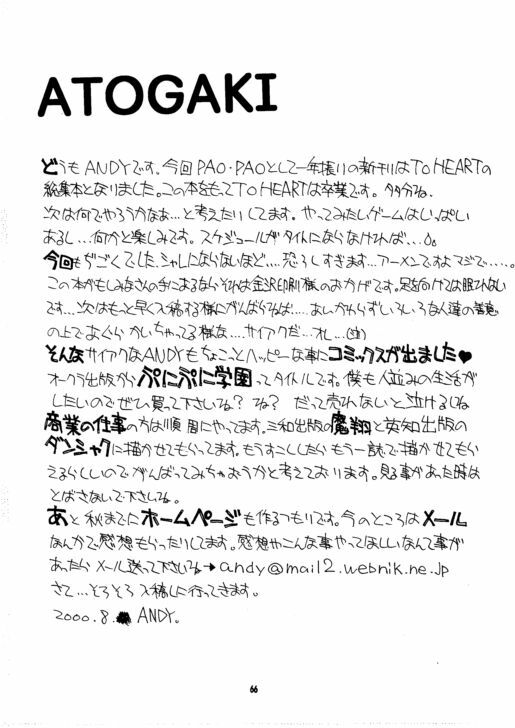 ATOGAKI
どうもANDYです。今回PAO・PAOとして一年振りの新刊はTO HEARTの
総集本となりました。この本をもってTO HEARTは卒業です。多分ね、
次は何でやろうかなぁ…と考えたりしてます。やってみたいゲームはいっぱい
あるし…何かと楽しみです。スケジュールがタイトにならなければ…
今回もぢごくでした、シャレにならないほど…恐ろしすぎます…アーメンですよマジで……。
この本がもしみなさんの手にあるならそれは金沢印刷様のおかげです。足を向けては眠れない
です…次はもっと早く入稿する様にがんばらねば……あいかわらずいろいろな人達の善意
の上であぐらかいちゃってる様な……サイアクだ…オレ…
そんなサイアクなANDYもちょこっとハッピーな事にコミックスが出ました♥
オークラ出版からぷにぷに学園ってタイトルです。僕も人並みの生活が
したいのでぜひ買って下さいね？ね？だって売れないと泣けるしね
商業の仕事の方は順調にやってます。三和出版の魔翔と英知出版の
ダンシャクに描かせてもらってます。もうすこししたらもう一誌で描かせてもら
えるらしいのでがんばってみちゃおうかと考えております。見る事があった時は
とばさないで下さいね。
あと秋までにホームページも作るつもりです。今のところはメール
なんかで感想もらったりしてます。感想やこんな事やってほしいなんて事が
あったらメール送って下さいね→andy@mail2.webnik.ne.jp
さて…そろそろ入稿しに行ってきます。
2000.8. ANDY。
66